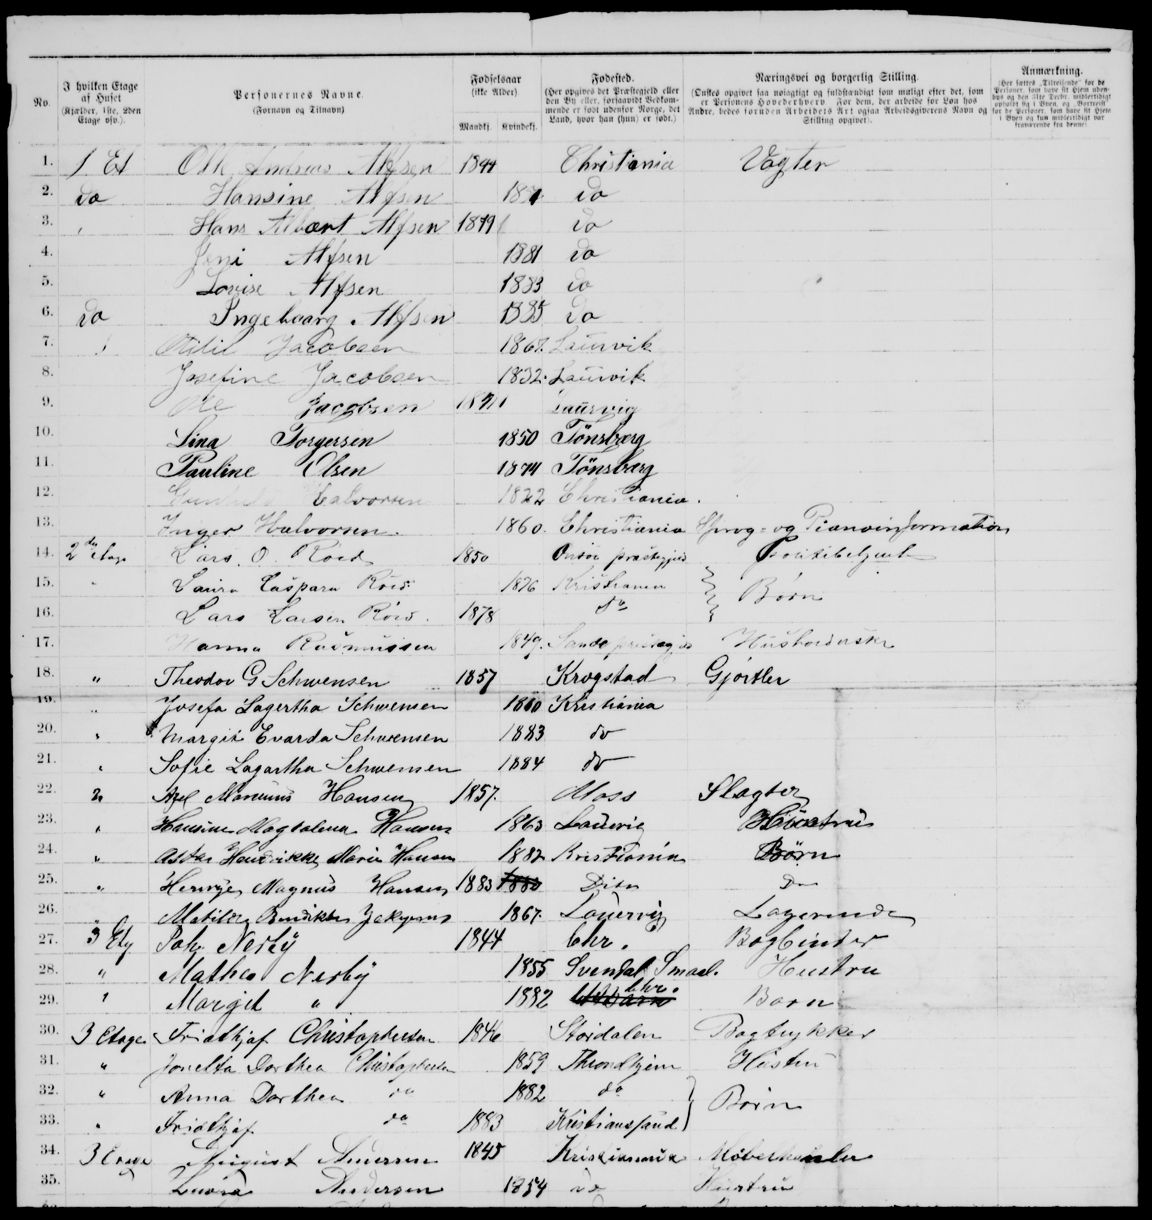 No.
I hvilken Etage af Huset (Kjælder, 1ste, 2den Etage osv.).
Personernes Navne. (Fornavn og Tilnavn)
Fødselsaar (ikke Alder). Mandkj. Kvindekj.
Fødested. (Her opgives det Præstegjeld eller den By eller, forsaavidt Vedkommende er født udenfor Norge, det Land, hvor han (hun) er født.)
Næringsvei og borgerlig Stilling. (Ønskes opgivet saa nøiagtigt og fuldstændigt som muligt efter det, som er Personens Hovederhverv. For dem, der arbeide for Løn hos Andre, bedes foruden Arbeidets Art ogsaa Arbeidsgiverens Navn og Stilling opgivet).
Anmærkning.
1. 1. Et Andreas Alfsen 1844 Christiania Vagter
2. do Hansine Alfsen do
3. Hans Albært Alfsen 1879 do
4. Jeni Alfsen 1881 do
5. Lovise Alfsen 1883 do
6. do Ingeboarg Alfsen 1885 do
7. Jacobsen Laurvik
8. Josefine Jacobsen 1832. Laurvik
9. Ole Jacobsen Laurvig
10. Lina Torgersen 1850 Tönsbærg
11. Pauline Olsen 1874 Tönsbærg
12. Halvorsen 1822 Christiania.
13. Inger Halvorsen. 1860. Christiania Sprog- og Pianoinformation
14. 2den Etage Lars. O. Röed 1850 Onsöe præstegjeld Politibetjent
15. " Laura Caspara Röed 1876 Kristiania
Børn
16. Lars Larsen Röed. 1878 do
17. Hanna Rasmussen 1849. Sande præstegjd Husholderske
18. " Theodor G Schwensen 1857 Krogstad Gjörtler
19. " Josefa Lagertha Schwensen 1860 Kristiania
20. " Margit Evarda Schwensen 1883 do
21. " Sofie Lagartha Schwensen 1884 do
22. " Axel Marenius Hansen 1857. Moss Slagter
23. " Hansine Magdalena Hansen 1863 Laurvig Hustru
24. " Hendrikke Marie Hansen 1882 Kristiania Børn
25. " Magnus Hansen 1883 1880 Dito Do
26. " Matilde 1867. Laurvig Logerende
27. 3 Etg. Nerby 1844 Chr. Bogbinder
28. " Mathea Nerby 1855 Svendal Smaal. Hustru
29. " Margit " 1882 Chr. Barn
30. 3 Etage Fridthjof Christophersen 1846 Størdalen Bogtrykker
31. " Jonetta Dorthea Christophersen 1859 Throndhjem Hustru
32. " Anna Dorthea do 1882 do
Børn
33. " Fridthjof do 1883 Kristianssund
34. 3 Etage August Andersen 1845 Kristiania Møbelhandler
35. Andersen 1854 do Hustru